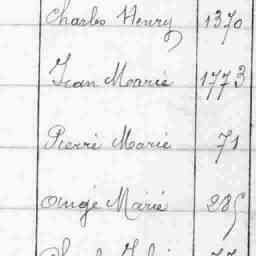 Charles Henry 1370
Jean Marie 1773
Pierre Marie 71
Ange Marie 285